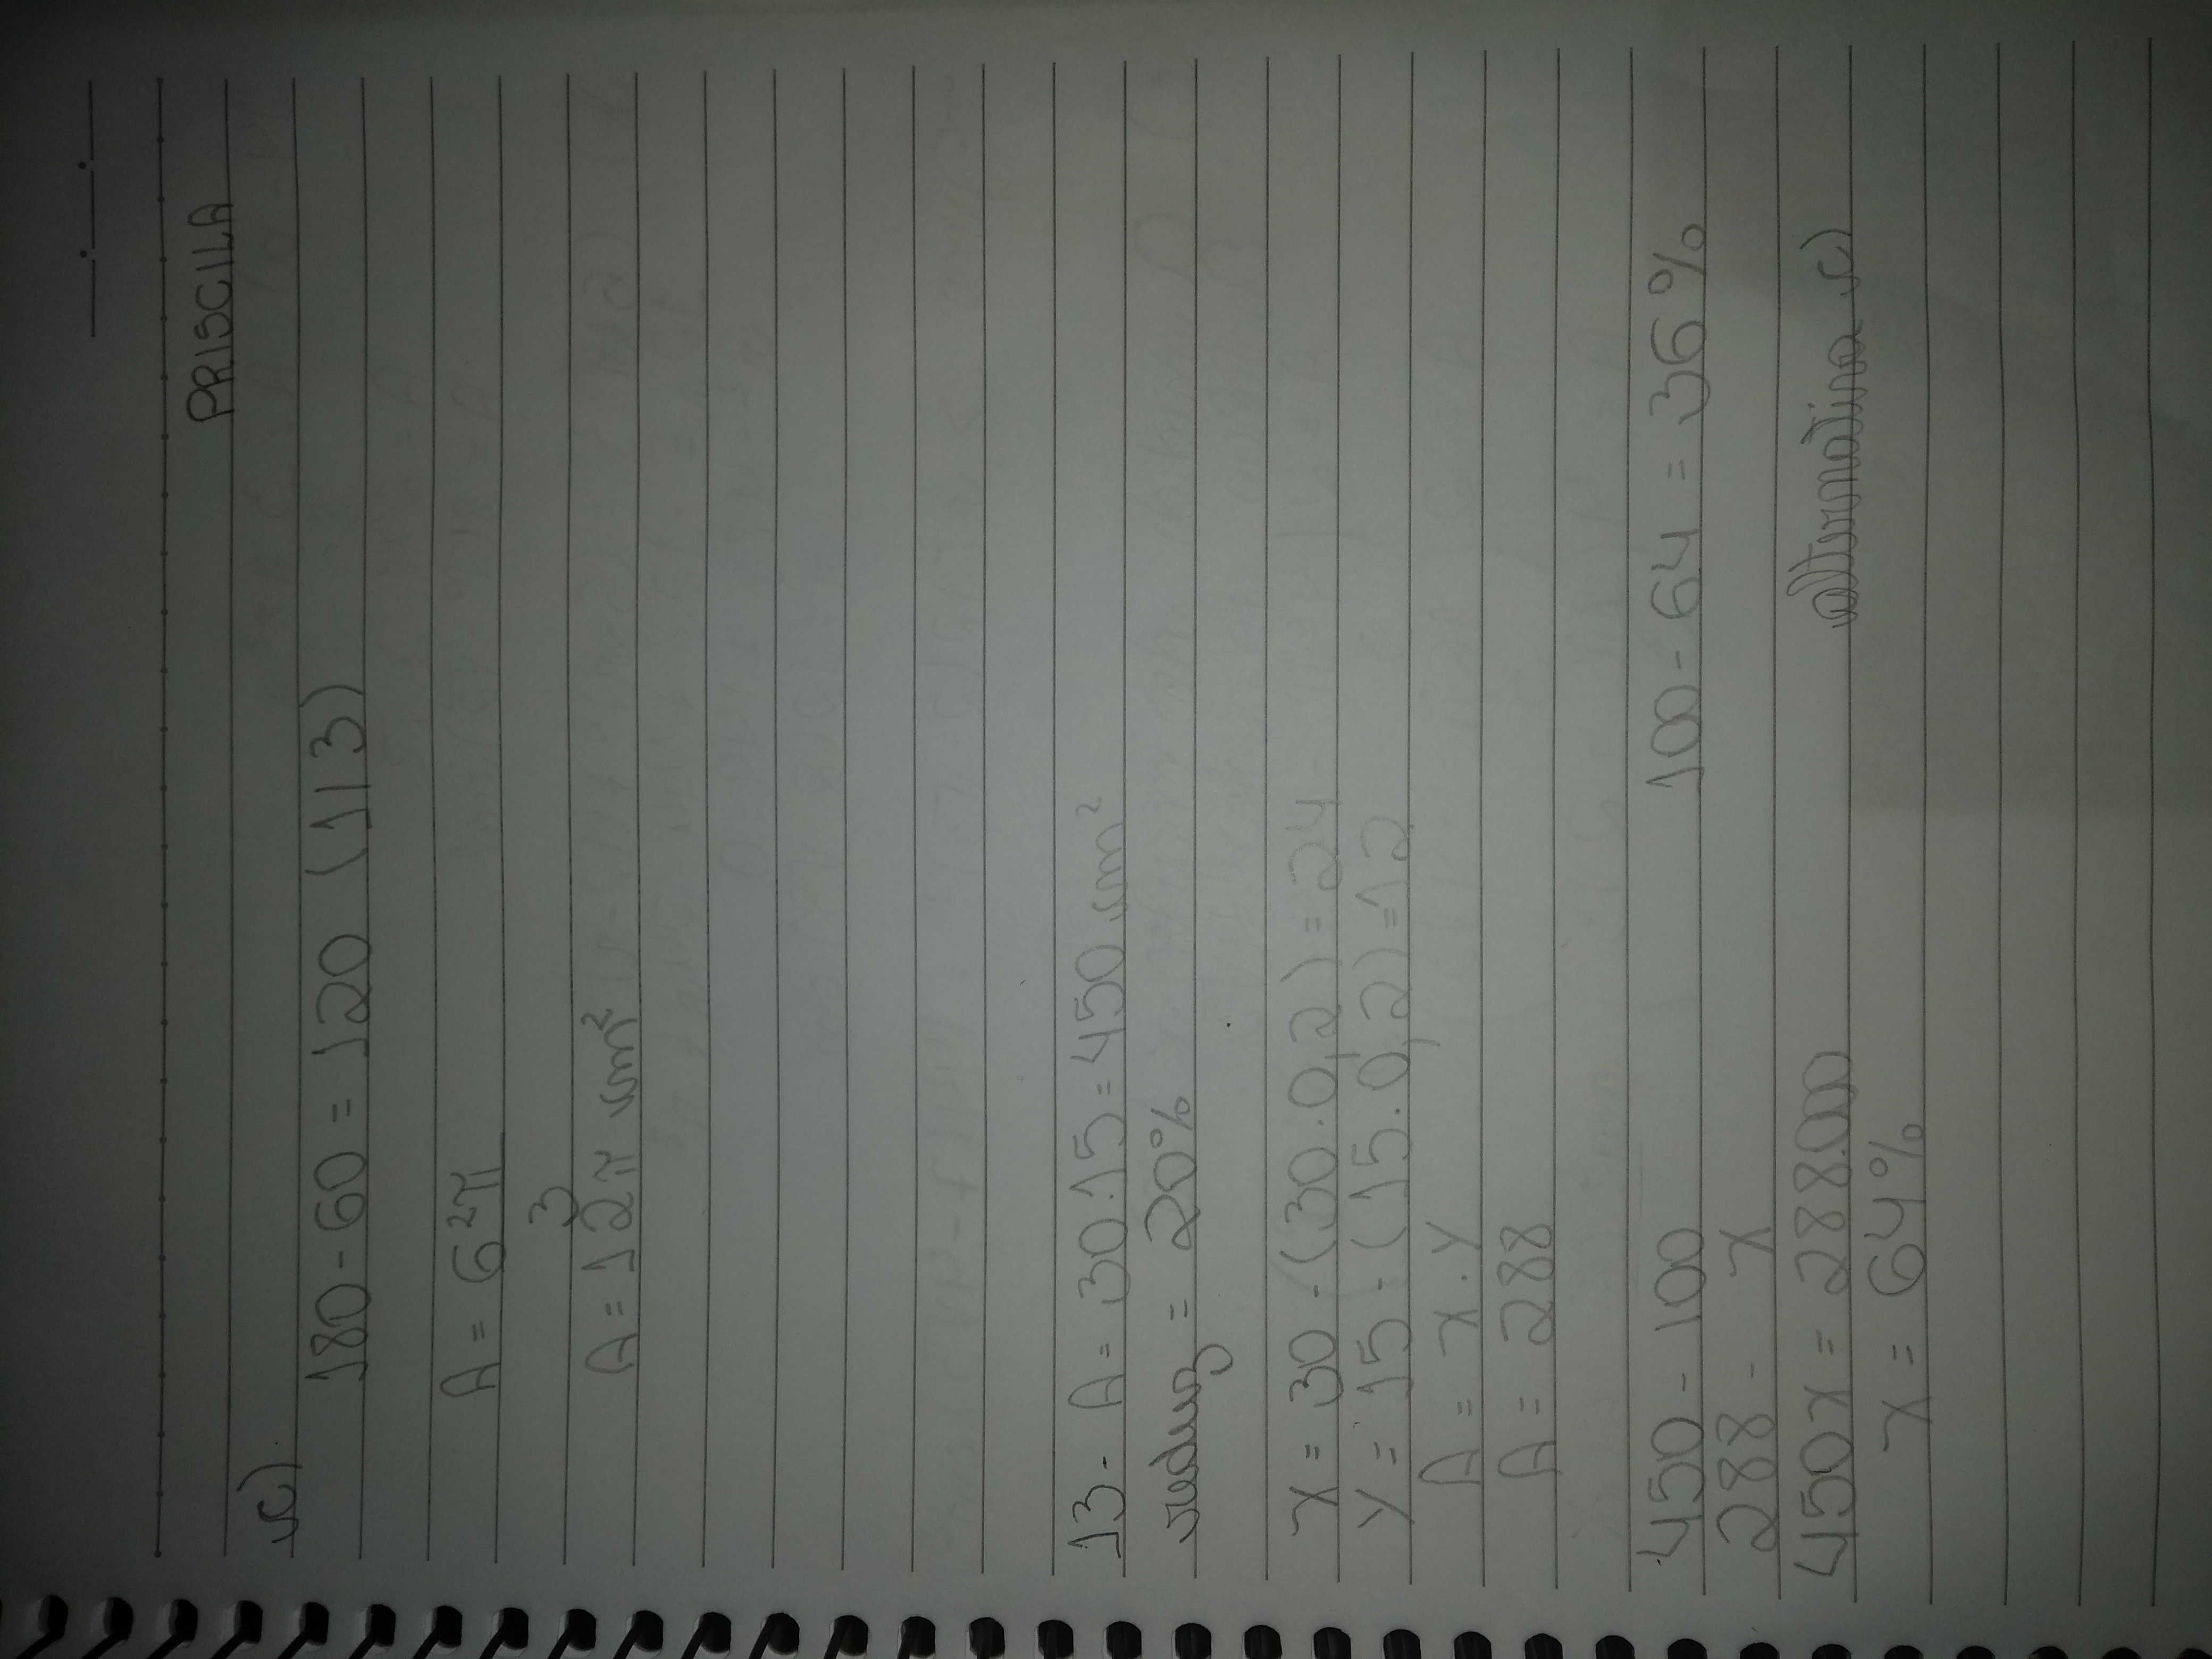 PRISCILA
c)
180 - 60 = 120 (1/3)
A = 6²π
3
A = 12π cm²
13 - A = 30.15 = 450 cm²
reduz = 20%
x = 30 - (30.0,2) = 24
y = 15 - (15.0,2) = 12
A = x.y
A = 288
450 - 100 100 - 64 = 36%
288 - x
450x = 28800 alternativa c)
x = 64%